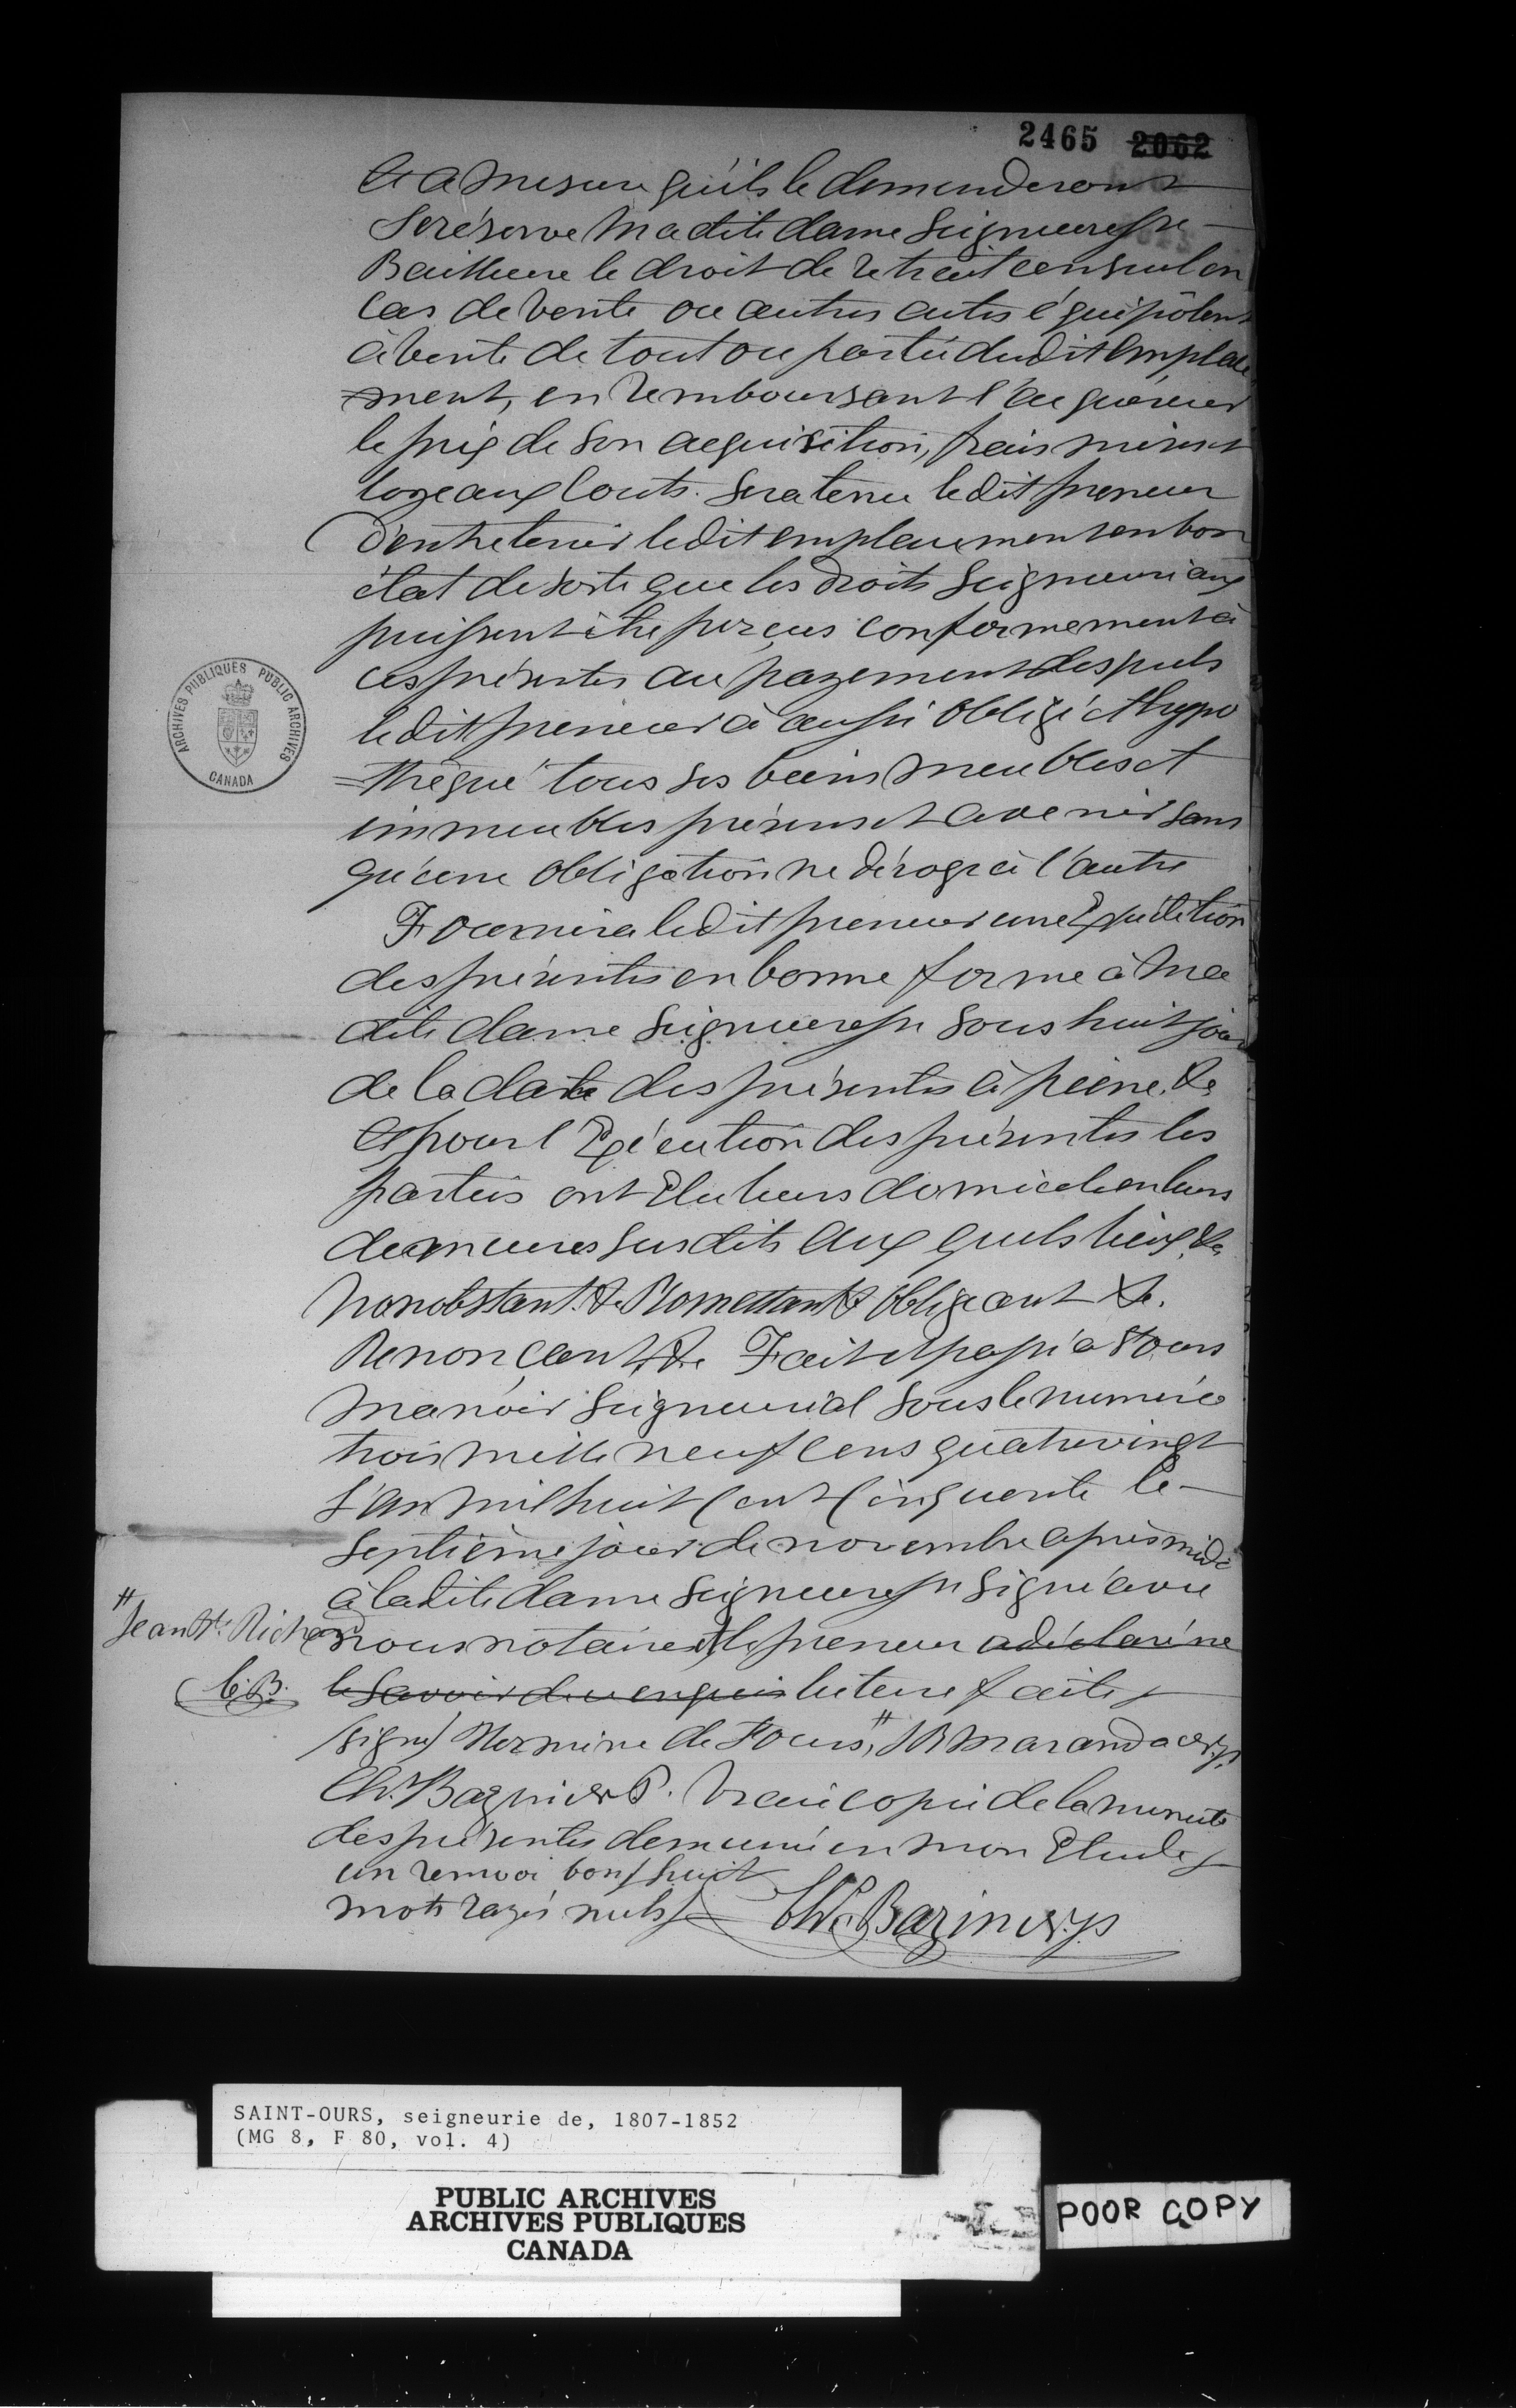 2465 2062
Et a mesure qu'ils le demanderont
Se réserve Madite dame Seigneuresse
Bailleure le droit de retrait censuel en
cas de vente ou autres actes équipôlent
à vente de tout ou partie dudit emplace
=ment, en remboursant l'acquéreur
le prix de son acquisition, frais mises et
loyeaux couts. Sera tenu ledit preneur
d'entretenir ledit emplacement en bon
état de sorte que les droits Seigneuriaux
puissent être perçus conformement à
ces présentes au payement desquels
ledit preneur à aussi obligé et hypo
=théqué tous ses biens meubles et
immeubles présens et avenir sans
qu'une obligation ne déroge à l'autre
Fournira ledit preneur une Expédition
des présentes en bonne forme à Ma
dite dame Seigneuresse sous huit jours
de la date des présentes à peine &c
Et pour l'Exécution des présentes les
parties ont Elu leurs domicile en leurs
demeures susdits aux quels lieux &c
Nonobstant &c Promettant &c obligeant &c.
Renonçant &c Fait et passé a St Ours
Manoir Seigneurial sous le numéro
trois mille neuf cens quatrevingt
L'an mil huit cent cinquante le
Septième jour de novembre après midi
à ladite dame Seigneuresse signé avec
nous notaires, le preneur a déclaré ne
le savoir de ce enquis lecture faite
# Jean Bte Richer
C.B.
(signé) Hermine de St Ours, # JB Marand a &c
Chs Bazin N.P. Vraie copie de la minute
des présentes demeurée en mon Etude
un renvoi bon, huit
mots rayés nuls
Chs Bazin N.P.
ARCHIVES PUBLIQUES PUBLIC ARCHIVES
CANADA
SAINT-OURS, seigneurie de, 1807-1852
(MG 8, F 80, vol. 4)
PUBLIC ARCHIVES
ARCHIVES PUBLIQUES
CANADA
POOR COPY